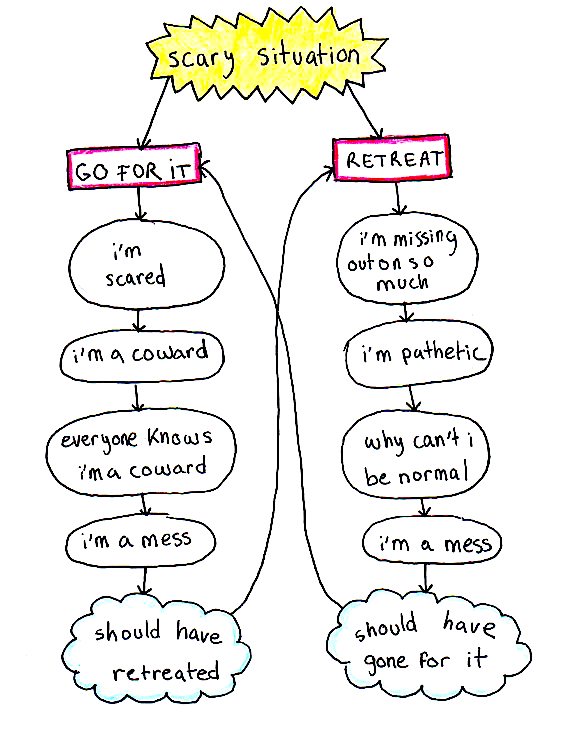 scary situation
GO FOR iT
i'm
scared
i'm a coward
everyone Knows
i'm a coward
i'm a mess
should have
retreated
RETREAT
i'm missing
out on so
much
i'm pathetic
why can't i
be normal
i'm a mess
should have
gone for it